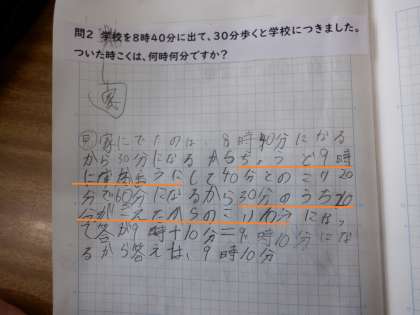 問2 学校を8時40分に出て、30分歩くと学校につきました。
ついた時こくは、何時何分ですか？
家
家にでたのは 8時40分になる
から30分になるからちょうど9時
にして40分とのこり20
分で60分になるから30分のうち20
分が
て答が9時+10分=9時10分にな
るから答えは、9時10分